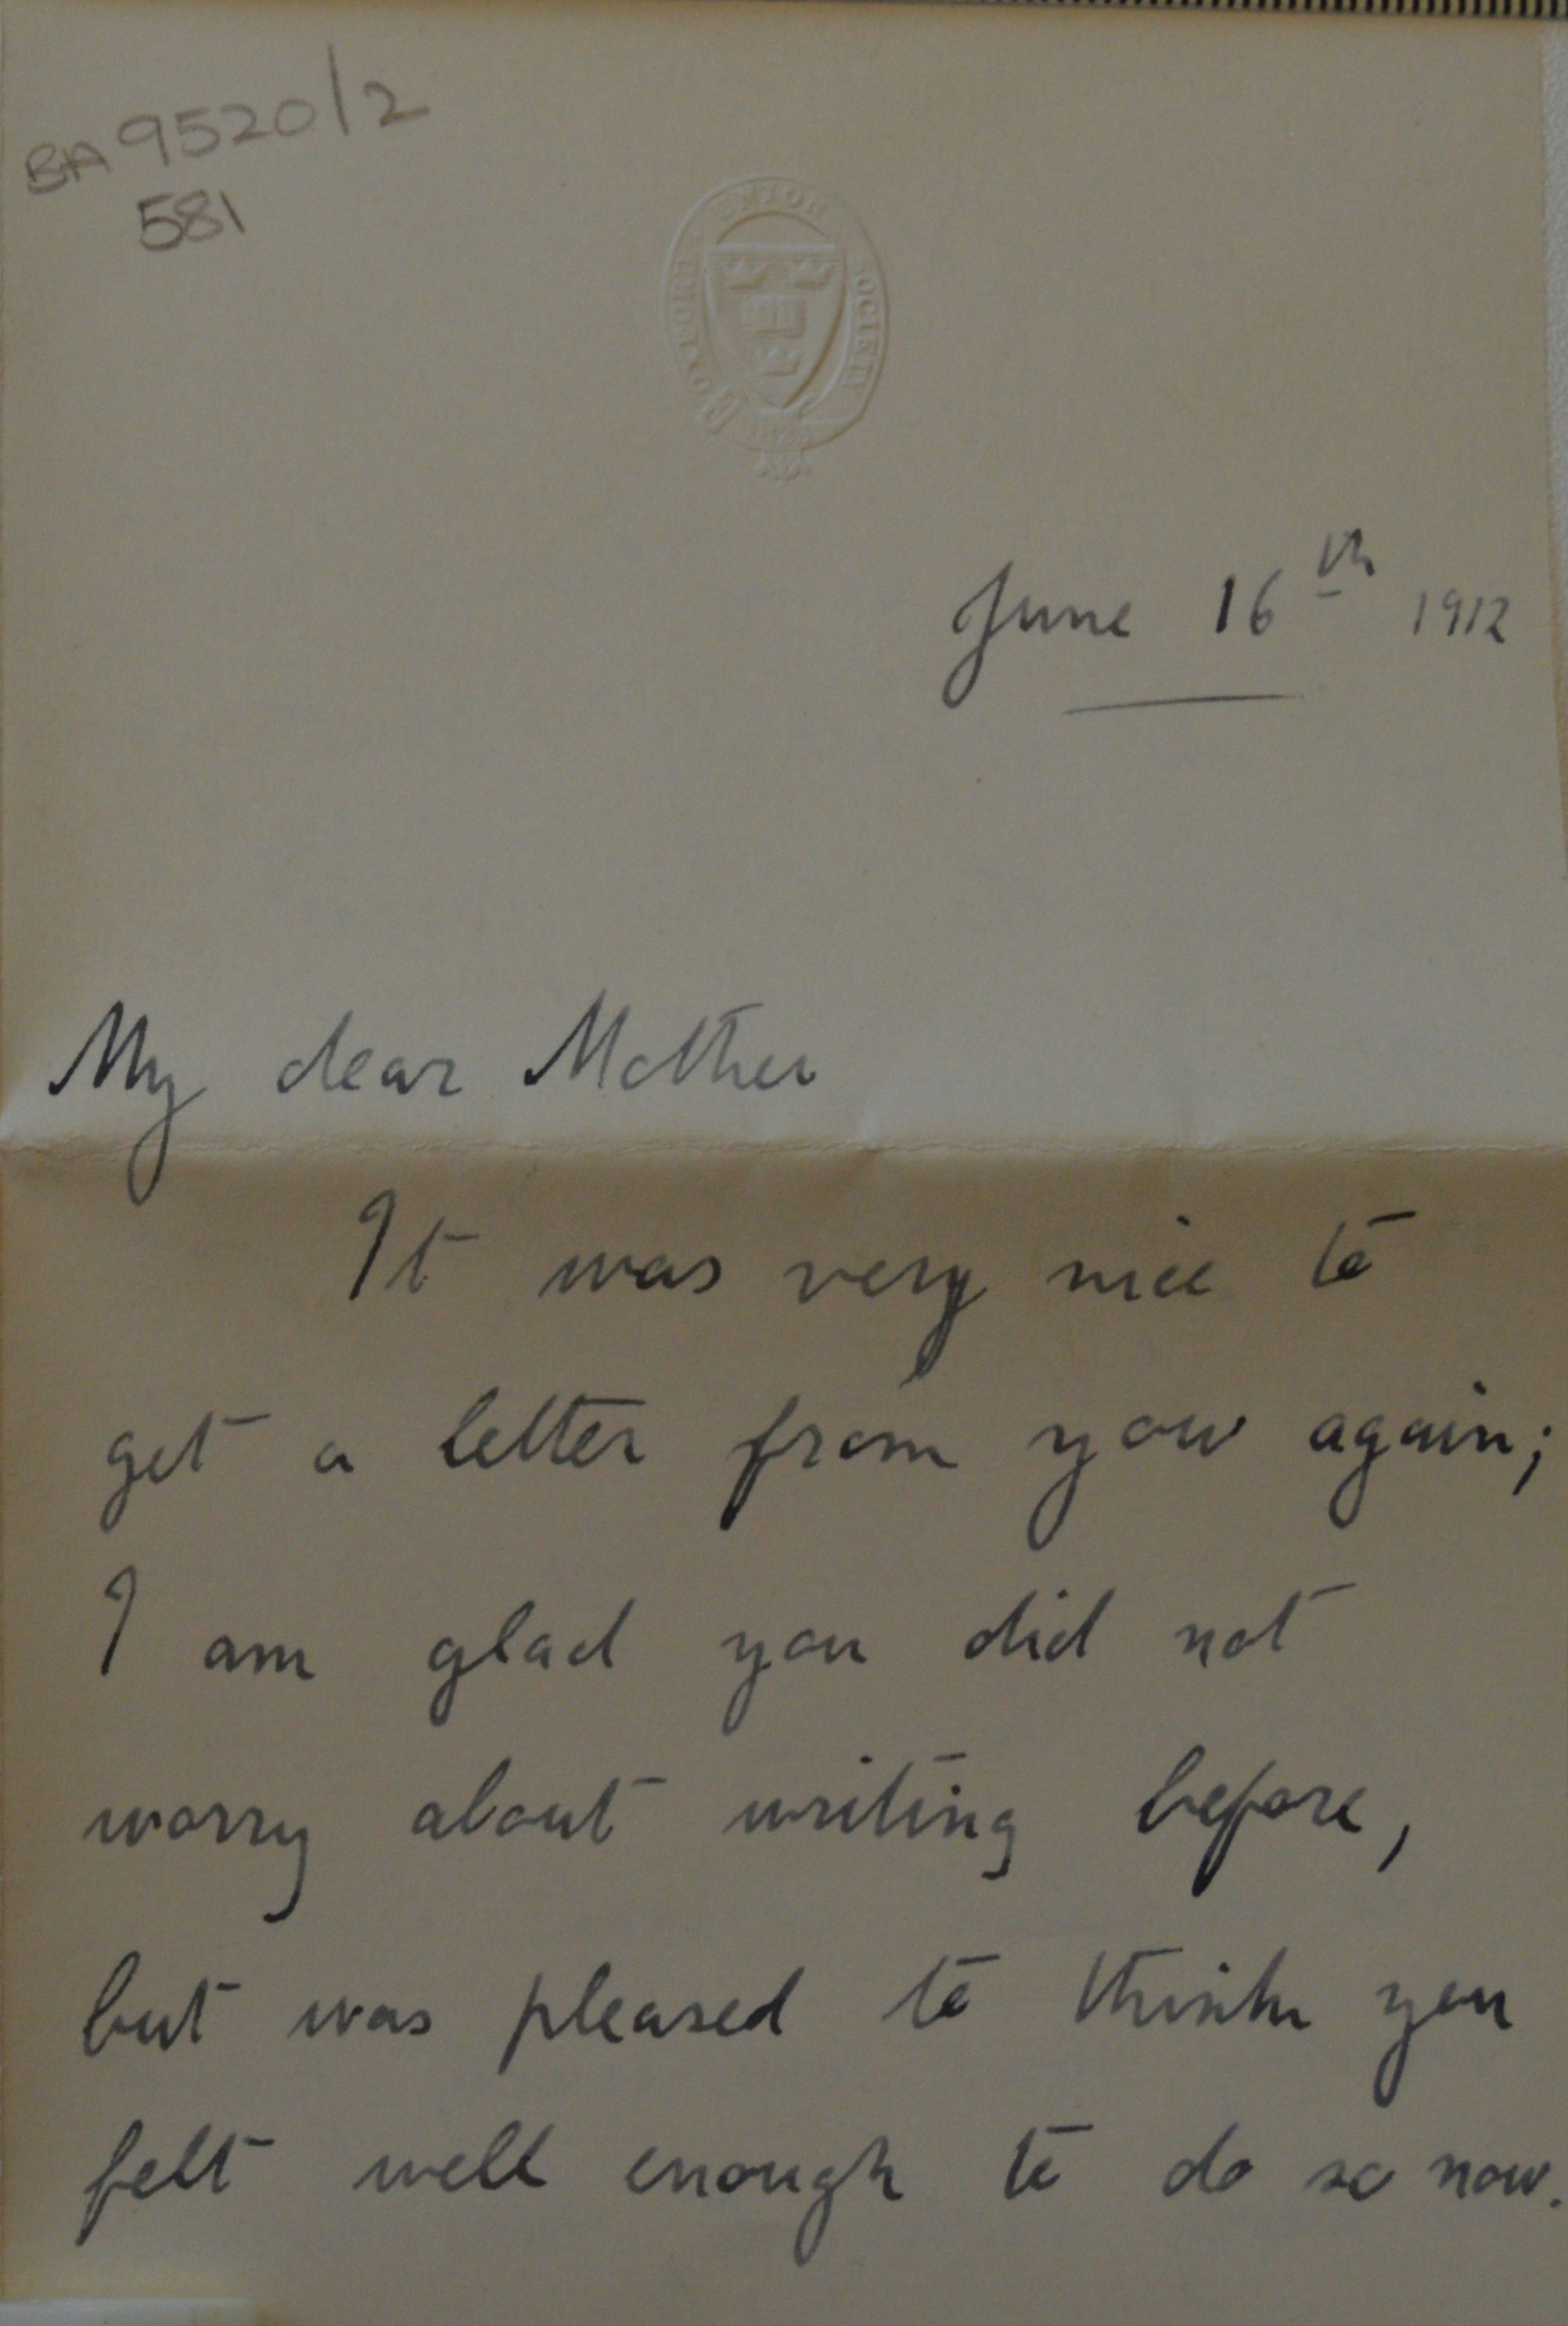 BA 9520/2
581
OXFORD UNION SOCIETY
June 16th 1912
My dear Mother
It was very nice to
get a letter from you again;
I am glad you did not
worry about writing before,
but was pleased to think you
felt well enough to do so now.